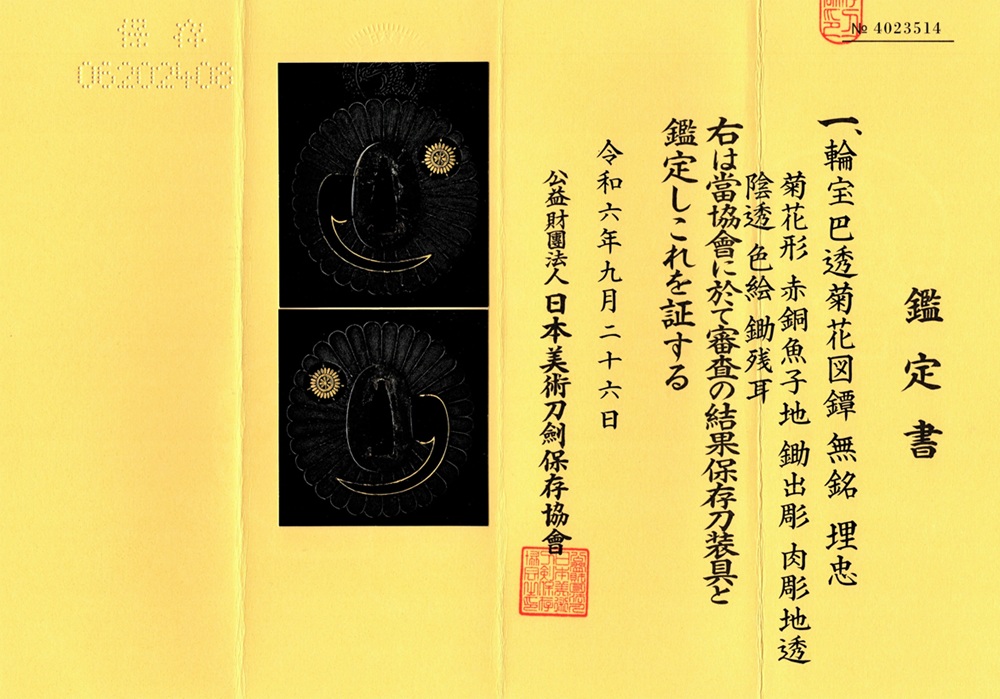 № 4023514
鑑定書
一、輪宝巴透菊花図鐔 無銘 埋忠
菊花形 赤銅魚子地 鋤出彫 肉彫地透
陰透 色絵 鋤残耳
右は當協會に於て審査の結果保存刀装具と
鑑定しこれを証する
令和六年九月二十六日
公益財團法人 日本美術刀劍保存協會
保存
06202408